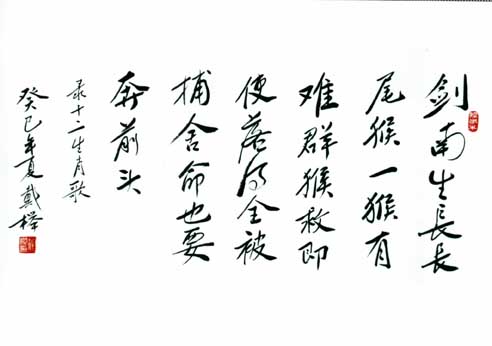 剑南生长长
尾猴一猴有
难群猴救即
使落得全被
捕舍命也要
奔前头
录十二生肖歌
癸巳年夏戴樺